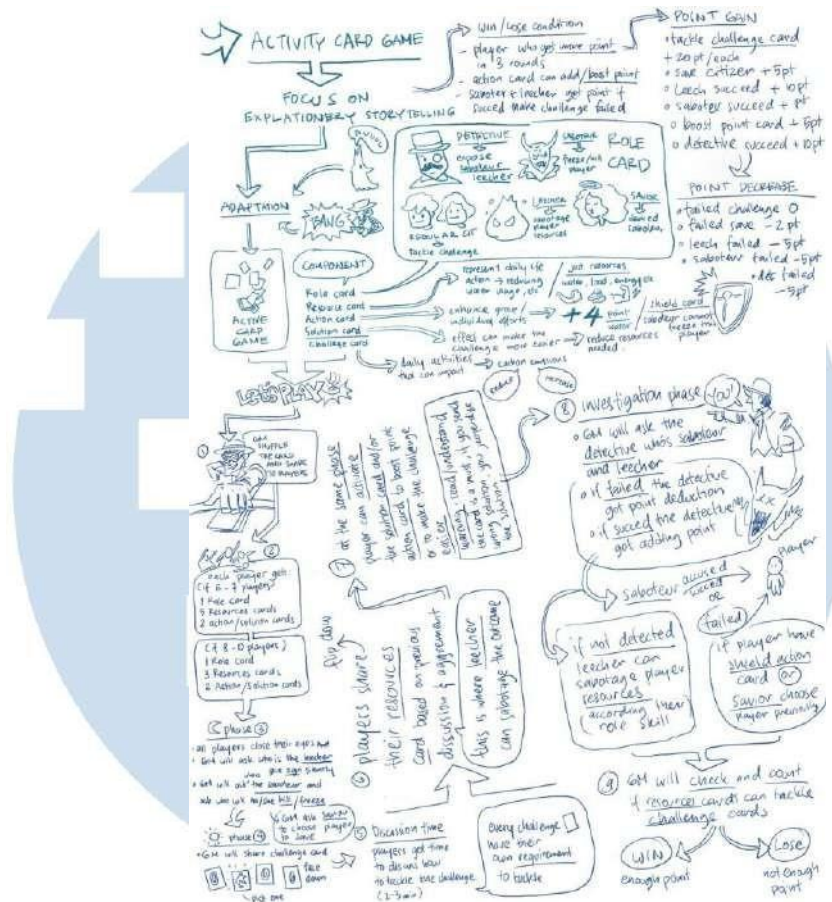 ACTIVITY CARD GAME
FOCUS ON
EXPLATIONERY STORYTELLING
win/lose condition
- player who get more point
in 3 rounds
- action card can add/boost point
- saboteur + leecher get point if
succeed make challenge failed
POINT GAIN
• tackle challenge card
+ 20pt/each
• save citizen + 5pt
• leech succeed + 10pt
• saboteur succeed +
• boost point card + 5pt
• detective succeed + 10pt
POINT DECREASE
• failed challenge 0
• failed save - 2 pt
• leech failed - 5pt
• saboteur failed - 5pt
failed
- 5pt
DETECTIVE
expose
saboteur
leecher
SABOTEUR
player
ROLE
CARD
REGULAR CIT
tackle challenge
LEECHER
sabotage
player
resources
ADAPTATION
BANG
ACTIVE
CARD
GAME
COMPONENT
Role card
Resource card
Action card
Solution card
Challenge card
represent daily life
action → reducing
water usage, etc
just resources
water, food, energy etc
enhance group/
individual efforts
+4 point
water
shield card
saboteur cannot
freeze this
player
effect can make the
challenge more easier
reduce resources
needed
daily activities
that can impact
carbon emissions
reduce
increase
LET'S PLAY
1
GM
SHUFFLE
THE CARD
AND SHARE
TO PLAYERS
2
each player get:
(if 6 - 7 players)
1 Role card
5 Resources cards
2 action/solution cards
1 Role card
3 Resources cards
2 Action/Solution cards
phase 3
all players close their eyes and
GM will ask who is the leecher
GM will ask the saboteur and
GM ask
to choose player
to save
phase 4
• GM will share challenge card
face
down
pick one
5 Discussion time
players get time
to discuss how
to tackle the challenge
(2-3min)
every challenge
have their
own requirement
to tackle
6 players share
flip down
their resources
card based on previous
discussion & aggrement
this is where leecher
can sabotage the outcome
7 at the same phase
player can activate
the solution card and/or
action card to boost point
or to make the challenge
easier
warning: read/understand
the card is a must if you
wrong solution, you
the solution
8 investigation phase
You!
• GM will ask the
detective who's saboteur
and leecher
• if failed the detective
got point deduction
• if succed the detective
got adding point
saboteur accused
player
or
failed
if not detected
leecher can
sabotage player
resources
according their
role skill
if player have
shield action
card or
savior choose
player previously
9 GM will check and count
if resources cards can tackle
challenge cards
WIN
enough point
Lose
not enough
point